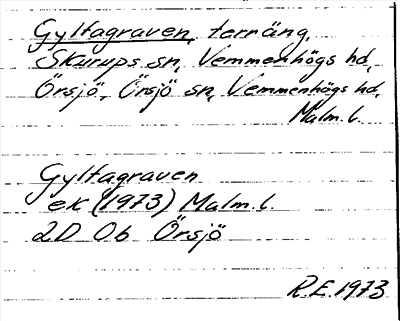 Gyltagraven, terräng,
Skurups sn, Vemmenhögs hd,
Örsjö, Örsjö sn, Vemmenhögs hd,
Malm. l.
Gyltagraven
ek (1973) Malm. l.
2D 0b Örsjö
R.E. 1973